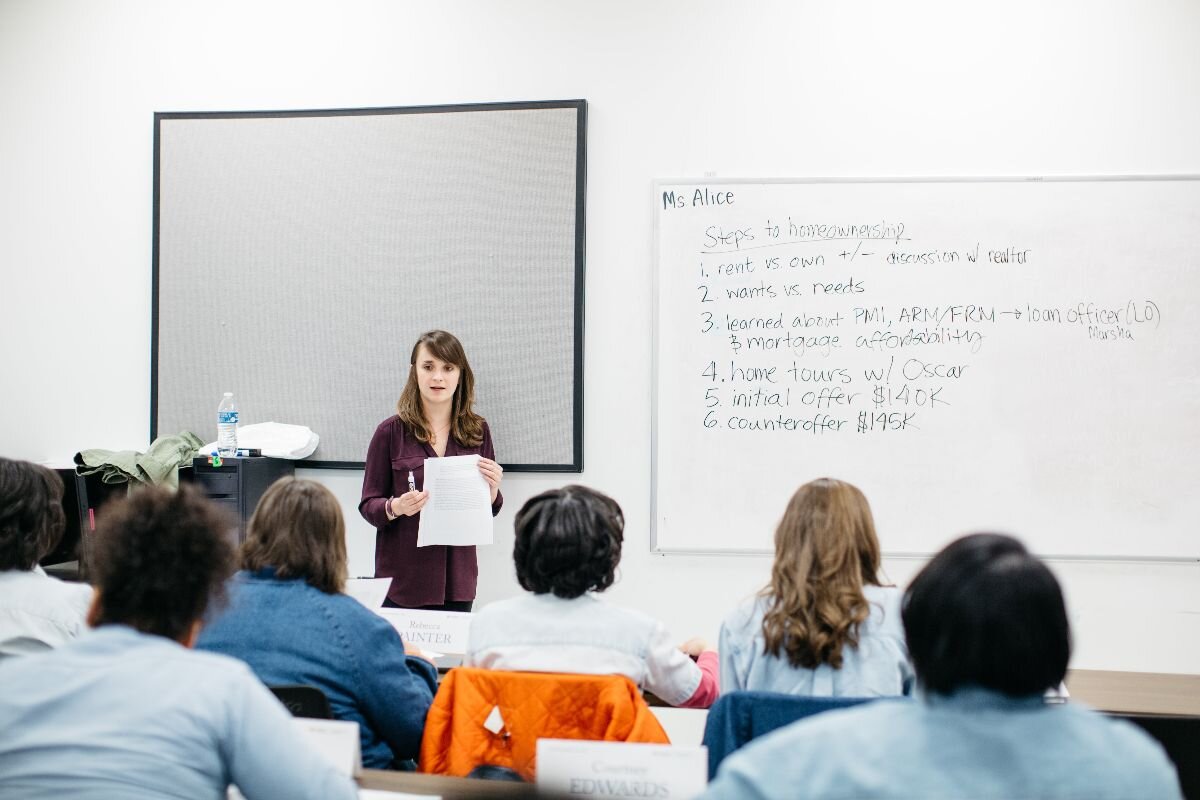 Ms Alice
Steps to homeownership
1. rent vs. own +/- discussion w/ realtor
2. wants vs. needs
3. learned about PMI, ARM/FRM → loan officer (LO)
Marsha
& mortgage affordability
4. home tours w/ Oscar
5. initial offer $140K
6. counteroffer $145K
Rebecca
PAINTER
Courtney
EDWARDS